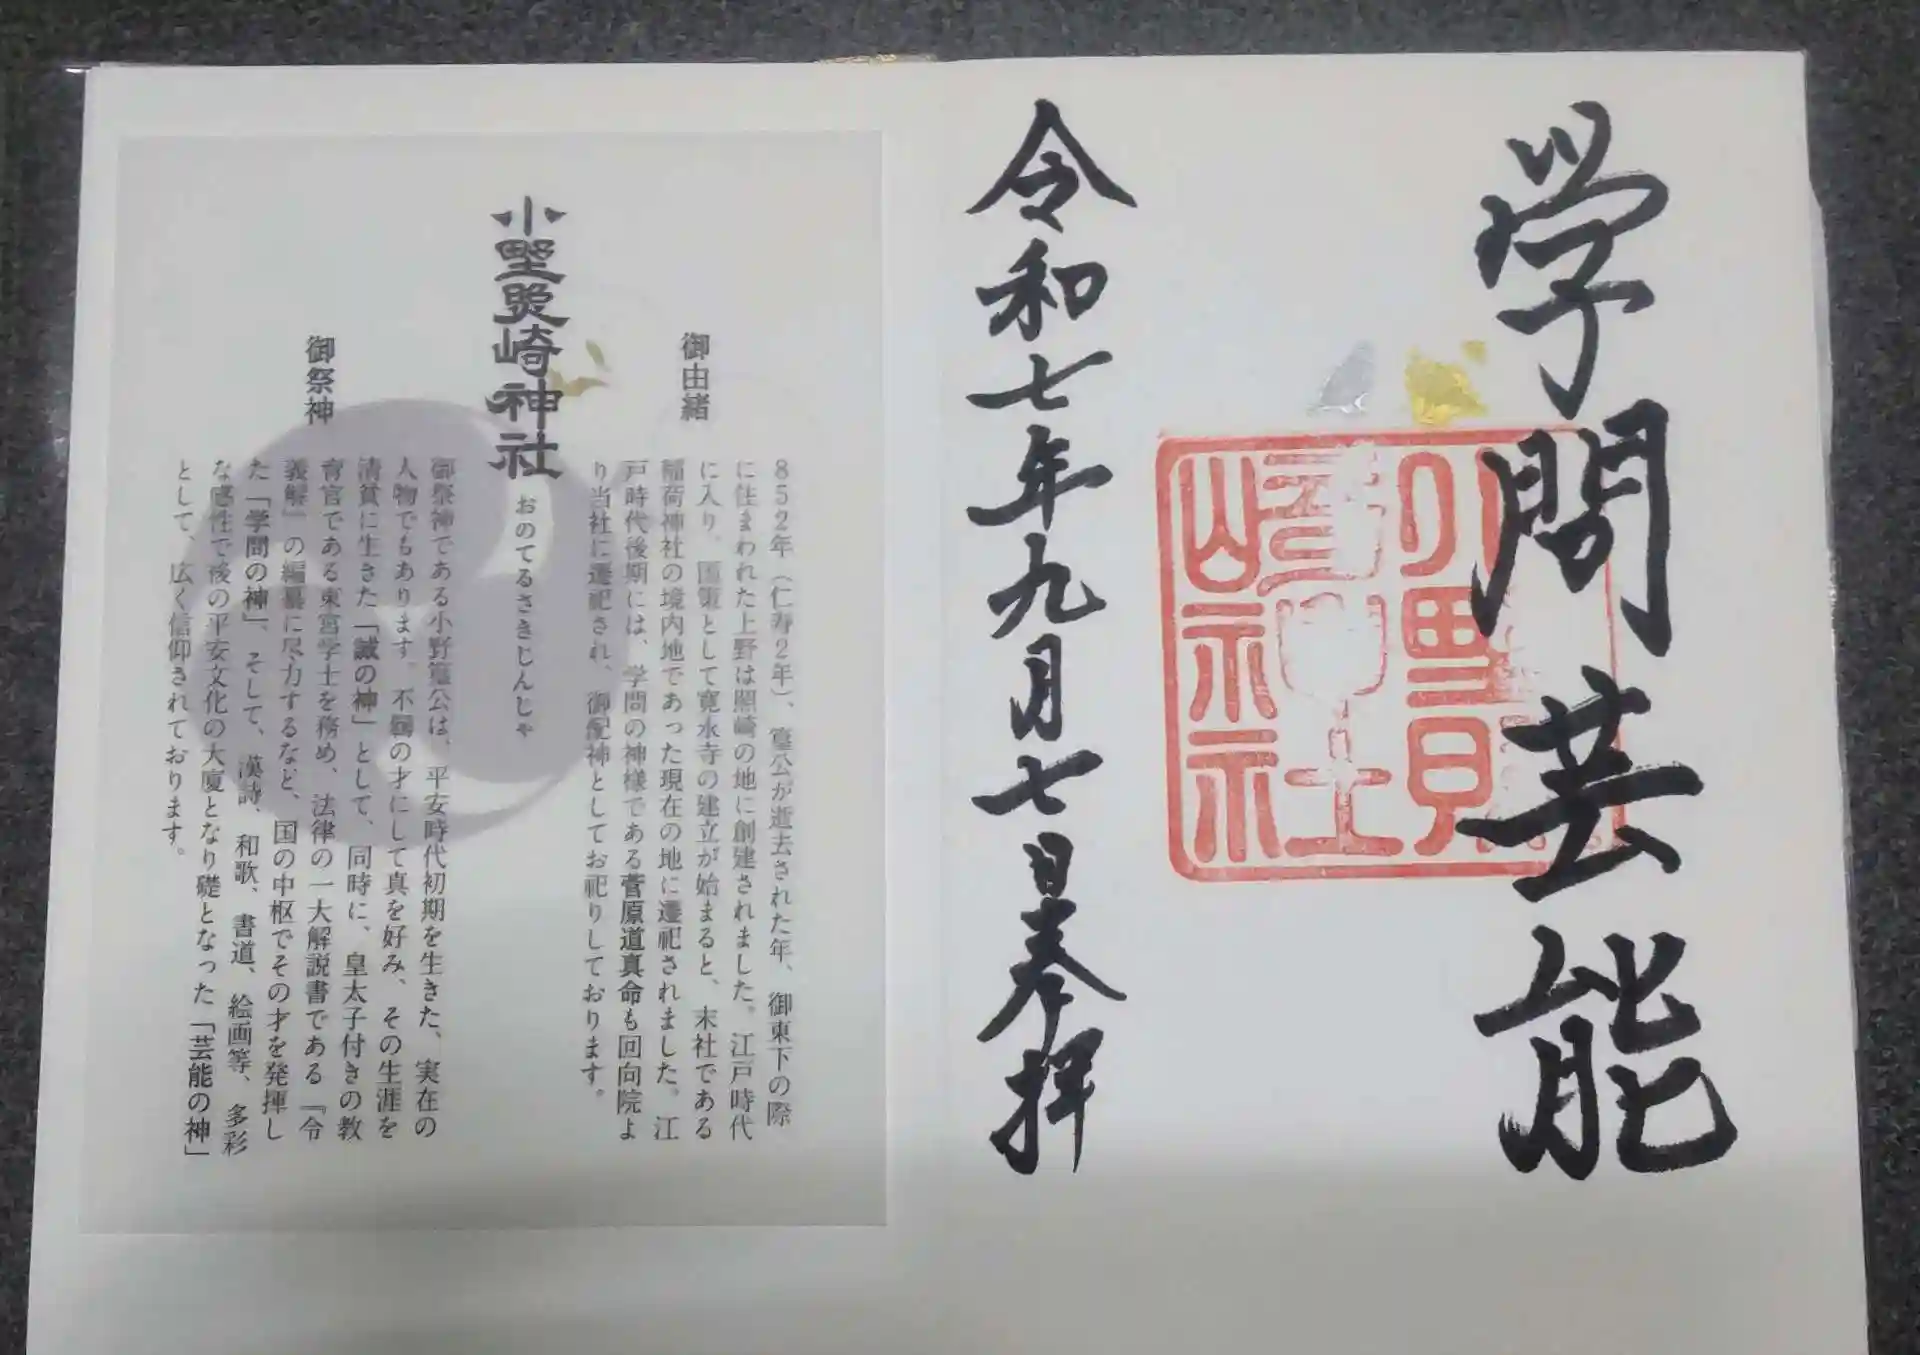 学問芸能
小野照崎神社
令和七年九月七日奉拝
御由緒
852年（仁寿2年）、篁公が逝去された年、御東下の際
に住まわれた上野は照崎の地に創建されました。江戸時代
に入り、国策として寛永寺の建立が始まると、末社である
稲荷神社の境内地であった現在の地に遷祀されました。江
戸時代後期には、学問の神様である菅原道真命も回向院よ
り当社に遷祀され、御配神としてお祀りしております。
小野照崎神社
おのてるさきじんじゃ
御祭神
御祭神である小野篁公は、平安時代初期を生きた、実在の
人物でもあります。不羈の才にして真を好み、その生涯を
清貧に生きた「誠の神」として、同時に、皇太子付きの教
育官である東宮学士を務め、法律の一大解説書である『令
義解』の編纂に尽力するなど、国の中枢でその才を発揮し
た「学問の神」、そして、漢詩、和歌、書道、絵画等、多彩
な感性で後の平安文化の大廈となり礎となった「芸能の神」
として、広く信仰されております。